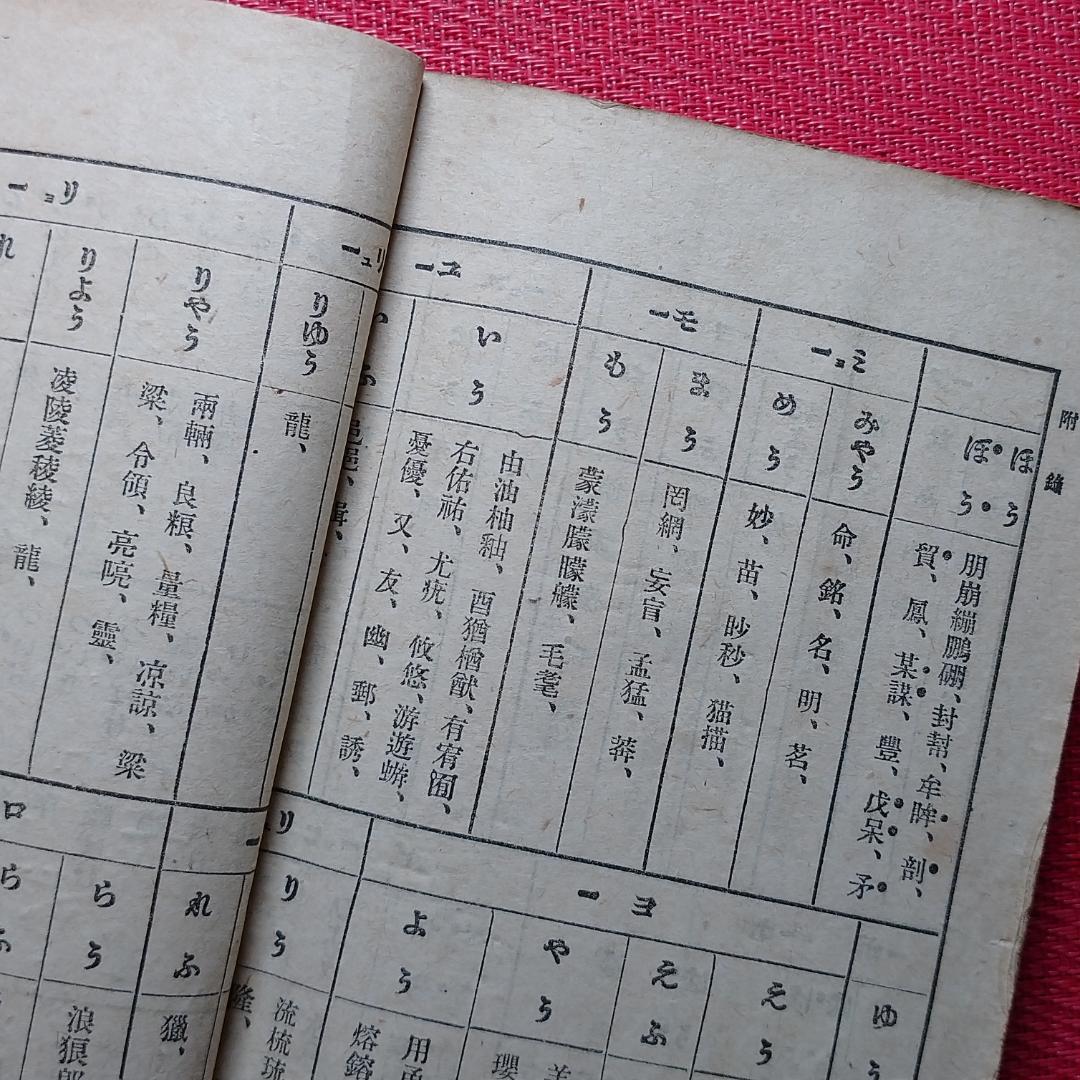 附錄
ほう
ぼう
朋崩繃鵬硼、封幇、牟眸、剖、
貿、鳳、某謀、豐、戊呆、矛
ミョー
みやう
命、銘、名、明、茗、
めう
妙、苗、眇秒、猫描、
モー
まう
罔網、妄盲、孟猛、莽、
もう
蒙濛朦矇艨、毛耄、
ユー
いう
由油柚釉、酉猶楢猷、有宥囿、
右佑祐、尤疣、攸悠、游遊蝣、
憂優、又、友、幽、郵、誘、
リュー
りゆう
龍、
リョー
りやう
兩輛、良粮、量糧、凉諒、梁
粱、令領、亮喨、靈、
りよう
凌陵菱稜綾、龍、
れ
ゆう
ヨー
えう
えふ
やう
よう
用
熔鎔
りう
流梳琉
隆、
れふ
獵、
ロ
らう
浪狼郎
らふ